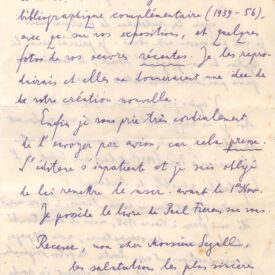 bibliographique complémentaire (1939-56),
avec ça sur vos expositions, et quelques
fotos de vos oeuvres récentes. Je les repro-
duirais et elles me donneraient une idée de
de votre création nouvelle.
Enfin je vous prie très cordialement
de l'envoyer par avion, car cela presse.
L'éditeur s'impatient et je suis obligé
de lui remettre le manuscr. avant le 1er Nov.
Je possède le livre de Paul Fierens sur vous.
Recevez, mon cher Monsieur Segall,
les salutations les plus sincères